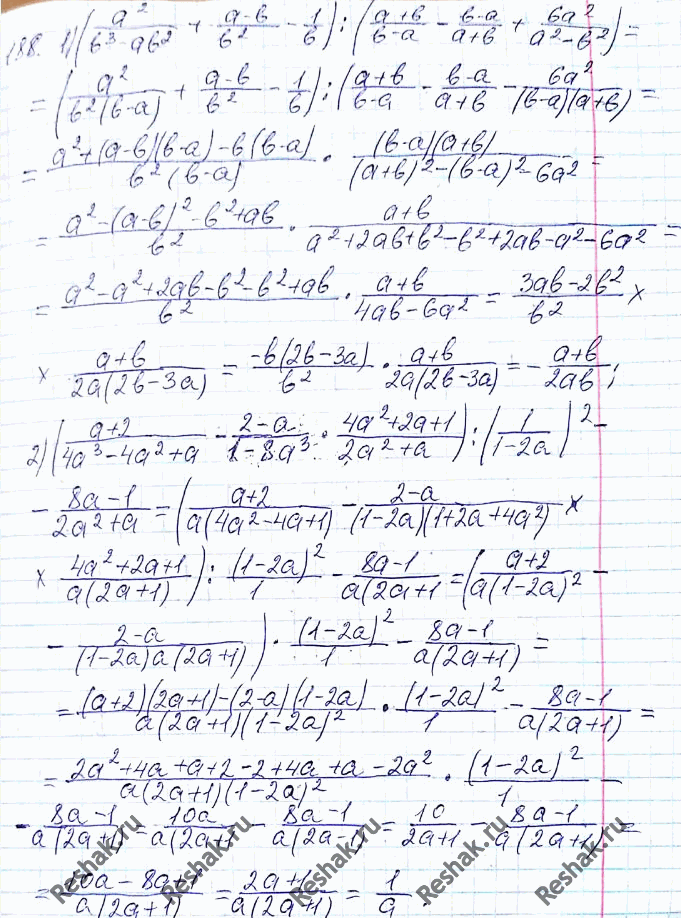 188. 1) (a²/(b³-ab²) + (a-b)/b² - 1/b) : ((a+b)/(b-a) - (b-a)/(a+b) + 6a²/(a²-b²)) =
= (a²/(b²(b-a)) + (a-b)/b² - 1/b) : ((a+b)/(b-a) - (b-a)/(a+b) - 6a²/((b-a)(a+b)) =
= (a²+(a-b)(b-a)-b(b-a))/(b²(b-a)) · ((b-a)(a+b))/((a+b)²-(b-a)²-6a²) =
= (a²-(a-b)²-b²+ab)/b² · (a+b)/(a²+2ab+b²-b²+2ab-a²-6a²) =
= (a²-a²+2ab-b²-b²+ab)/b² · (a+b)/(4ab-6a²) = (3ab-2b²)/b² ×
× (a+b)/(2a(2b-3a)) = (-b(2b-3a))/b² · (a+b)/(2a(2b-3a)) = -(a+b)/(2ab);
2) ((a+2)/(4a³-4a²+a) - (2-a)/(1-8a³) · (4a²+2a+1)/(2a²+a)) : (1/(1-2a))² -
- (8a-1)/(2a²+a) = ((a+2)/(a(4a²-4a+1)) - (2-a)/((1-2a)(1+2a+4a²)) ×
× (4a²+2a+1)/(a(2a+1))) : (1-2a)²/1 - (8a-1)/(a(2a+1 = ((a+2)/(a(1-2a)² -
- (2-a)/((1-2a)a(2a+1))) · (1-2a)²/1 - (8a-1)/(a(2a+1)) =
= ((a+2)(2a+1)-(2-a)(1-2a))/(a(2a+1)(1-2a)²) · (1-2a)²/1 - (8a-1)/(a(2a+1)) =
= (2a²+4a+a+2-2+4a+a-2a²)/(a(2a+1)(1-2a)²) · (1-2a)²/1 -
- (8a-1)/(a(2a+1)) = 10a/(a(2a+1) - (8a-1)/(a(2a-1)) = 10/(2a+1) - (8a-1)/(a(2a+1)) =
= (10a-8a+1)/(a(2a+1)) = (2a+1)/(a(2a+1)) = 1/a.
Reshak.ru Reshak.ru Reshak.ru Reshak.ru Reshak.ru